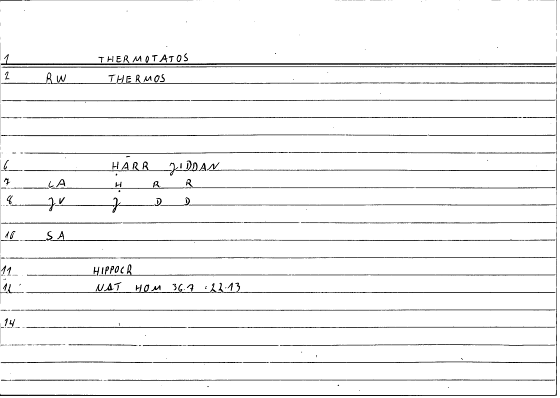 1 THERMOTATOS
2 RW THERMOS
6 ḤĀRR ǦIDDAN
7 LA Ḥ R R
8 JV Ǧ D D
10 SA
11 HIPPOCR
12 NAT HOM 36.7 :22.13
14